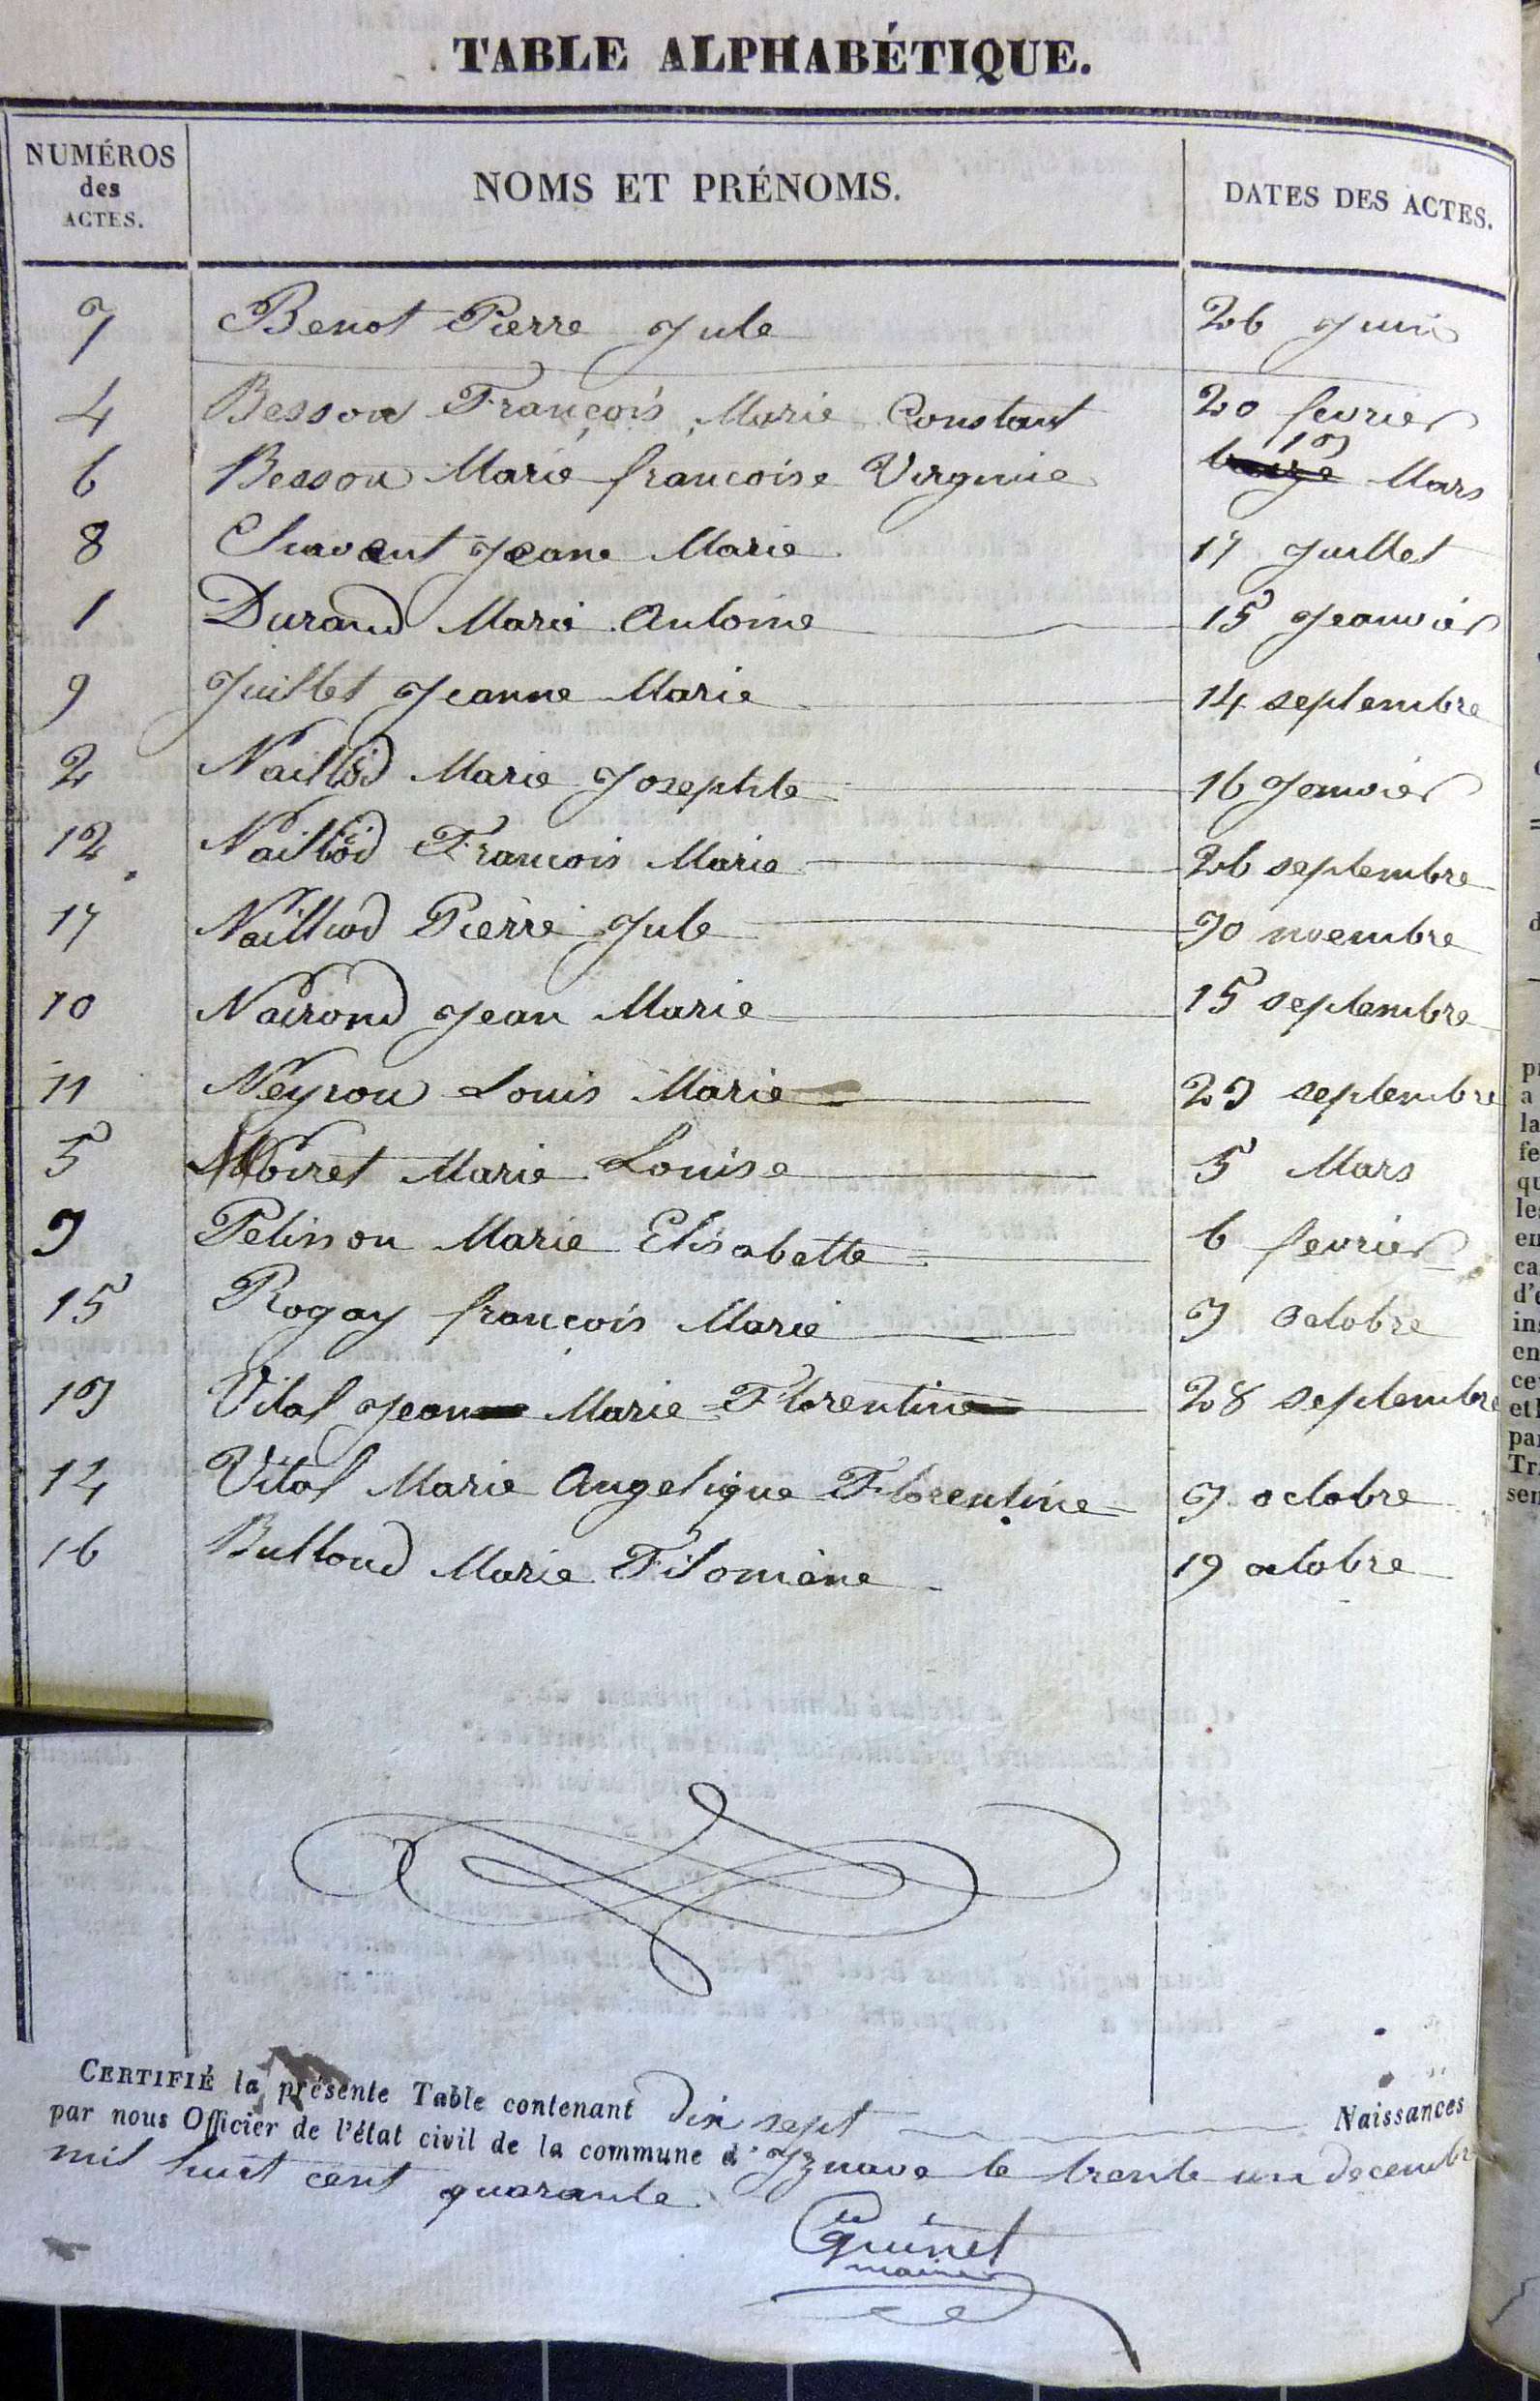 TABLE ALPHABÉTIQUE.
NUMÉROS des ACTES. NOMS ET PRÉNOMS. DATES DES ACTES.
7 Benot Pierre Jule 26 Juin
4 Besson François Marie Constant 20 fevrier
6 Besson Marie francoise Virginie 13 Mars
8 Chavent Jeane Marie 17 Juillet
1 Durand Marie Antoine 15 Jeanvier
9 Juillet Jeanne Marie 14 septembre
2 Naillod Marie Josephte 16 Janvier
12 Naillod Francois Marie 26 septembre
17 Naillod Pierre Jule 30 novembre
10 Nairond Jean Marie 15 septembre
11 Neyron Louis Marie 23 septembre
5 Noiret Marie Louise 5 Mars
3 Pelisson Marie Elisabette 6 fevrier
15 Rogay françois Marie 9 Octobre
13 Vital Jean Marie Florentin 28 septembre
14 Vital Marie Angelique Florentine 9 octobre
16 Bulloud Marie Filomène 19 octobre
CERTIFIÉ la présente Table contenant dix sept Naissances
par nous Officier de l'état civil de la commune d'Iznave le trente un decembre
mil huit cent quarante
Guinet
maire